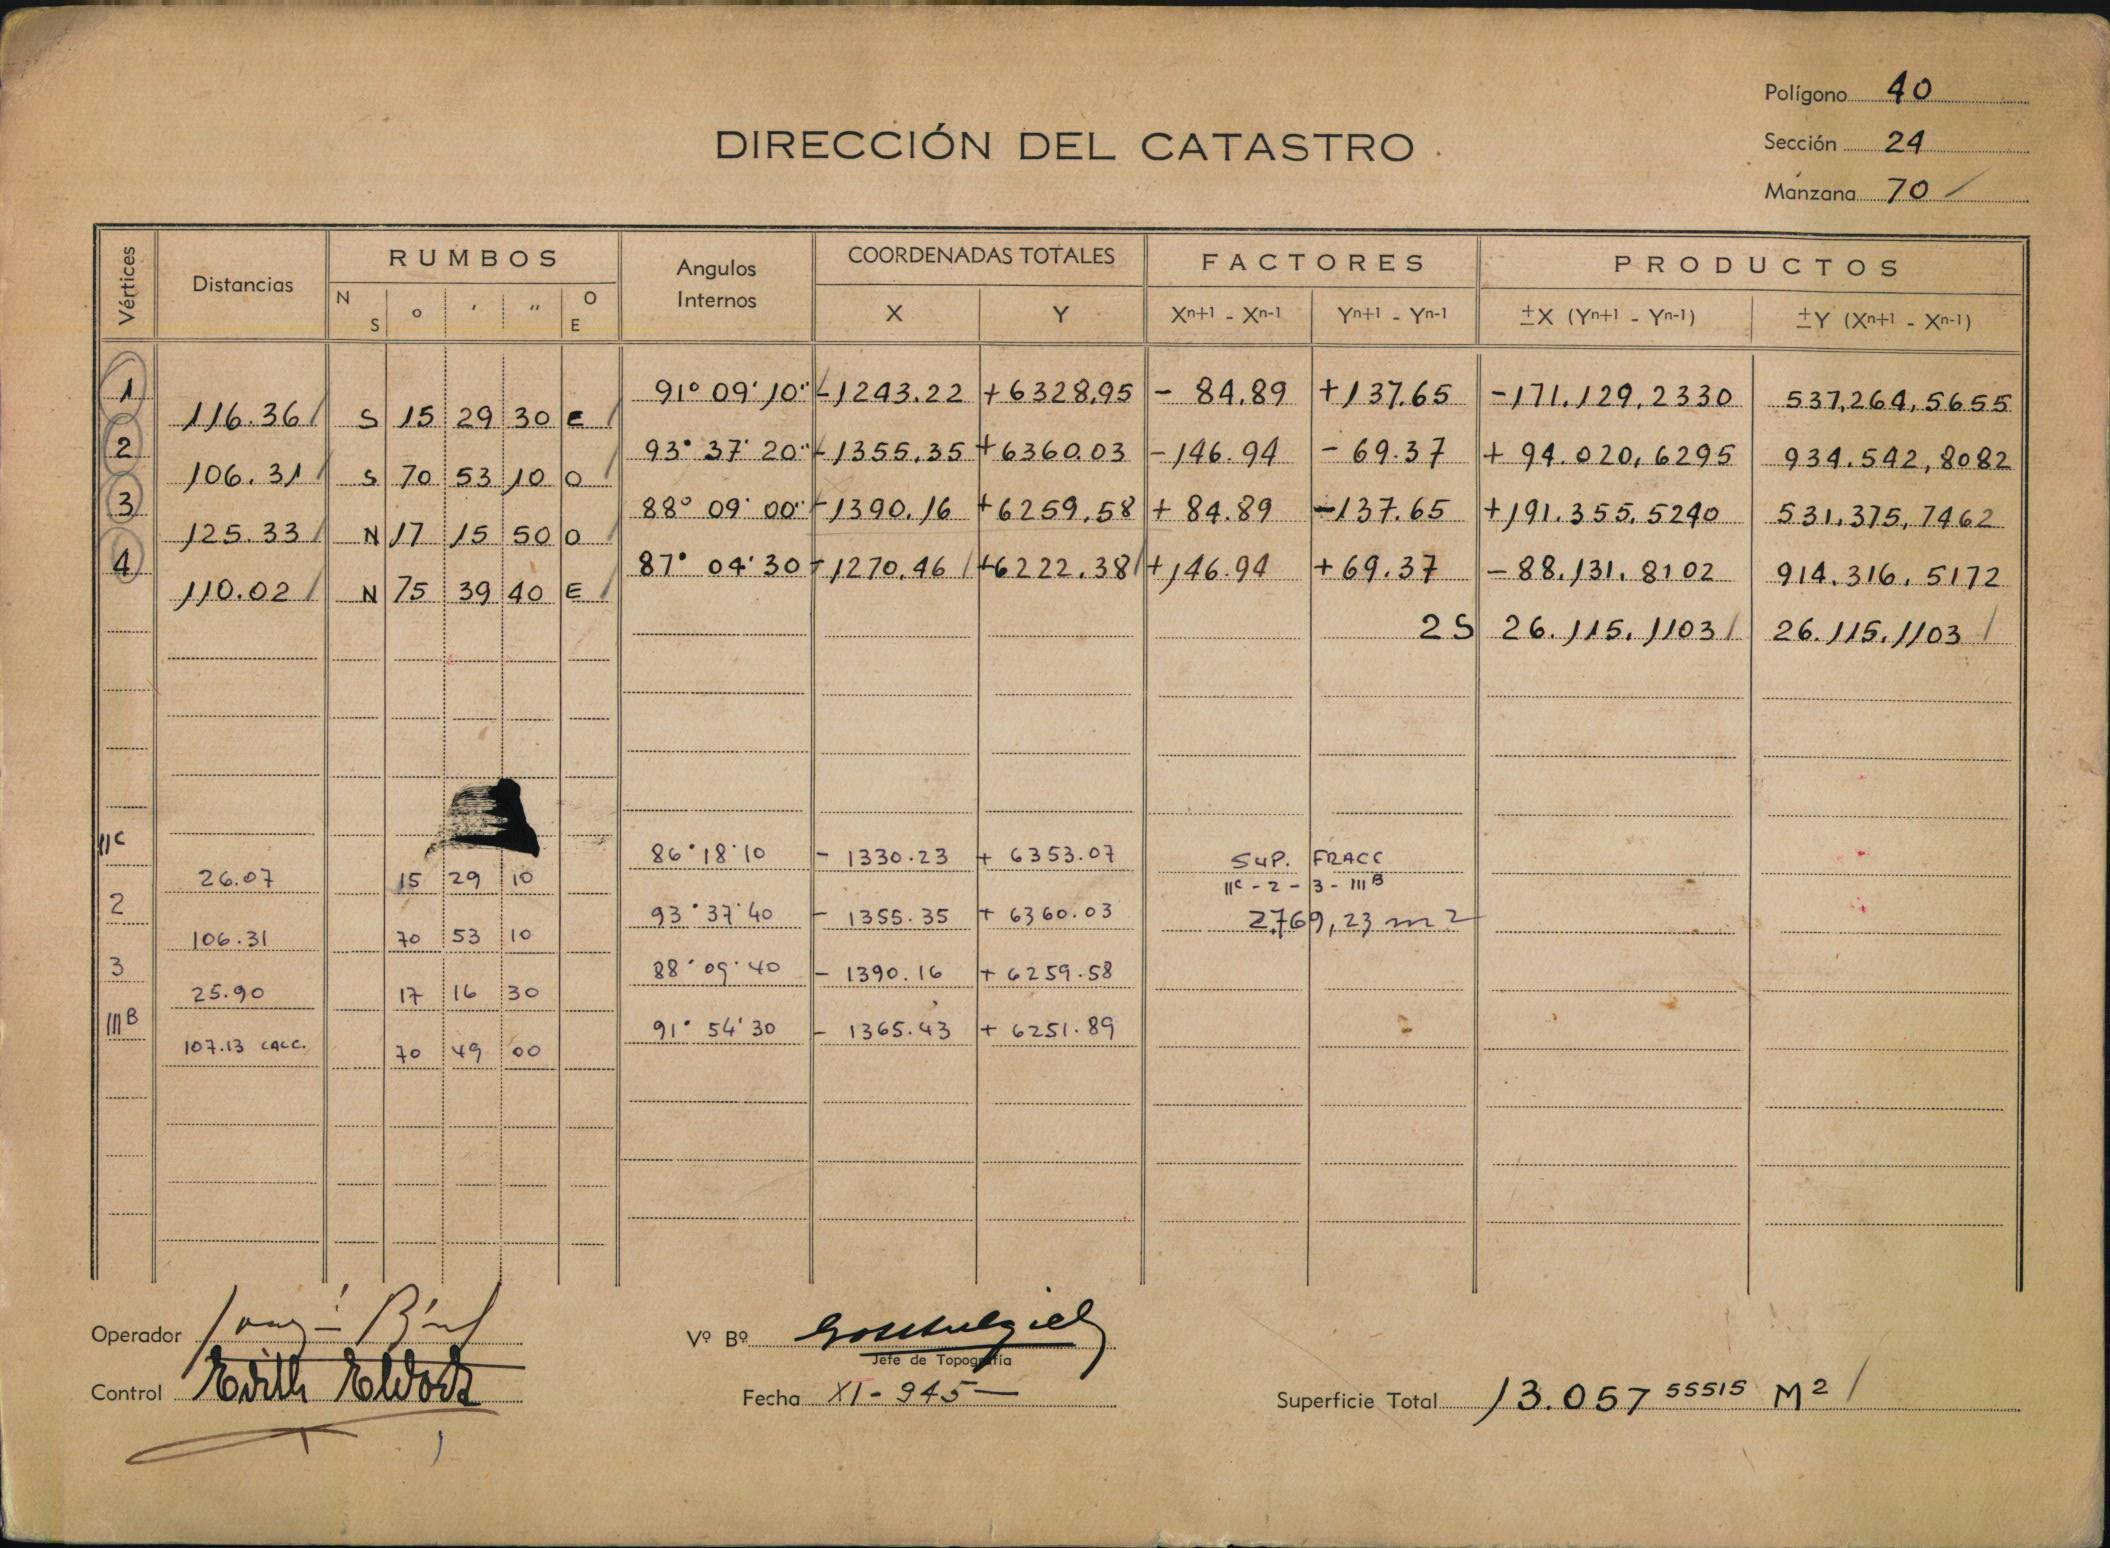 Polígono 40
DIRECCIÓN DEL CATASTRO
Sección 24
Manzana 70 /
Vértices Distancias RUMBOS Angulos Internos COORDENADAS TOTALES FACTORES PRODUCTOS
N S o ' '' O E X Y Xn+1 - Xn-1 Yn+1 - Yn-1 ±X (Yn+1 - Yn-1) ±Y (Xn+1 - Xn-1)
1 91° 09' 10'' -1243.22 +6328.95 - 84.89 +137.65 -171.129,2330 537,264,5655
116.36 / S 15 29 30 E /
2 93° 37' 20'' -1355.35 +6360.03 -146.94 - 69.37 + 94.020,6295 934.542,8082
106.31 / S 70 53 10 O /
3 88° 09' 00'' -1390.16 +6259.58 + 84.89 -137.65 +191.355.5240 531.375,7462
125.33 / N 17 15 50 O /
4 87° 04' 30 -1270.46 / +6222.38 / +146.94 +69.37 -88.131.8102 914.316,5172
110.02 / N 75 39 40 E /
2S 26.115.1103 / 26.115.1103 /
IIC 86° 18' 10 - 1330.23 + 6353.07 SUP. FRACC
26.07 15 29 10 IIC - 2 - 3 - IIIB
2 93° 37' 40 - 1355.35 + 6360.03 2.769,23 m2
106.31 70 53 10
3 88° 09' 40 - 1390.16 + 6259.58
25.90 17 16 30
IIIB 91° 54' 30 - 1365.43 + 6251.89
107.13 CALC. 70 49 00
Operador Vº Bº
Jefe de Topografía
Control Edith Fecha XI-945- Superficie Total 13.057 55515 M2 /